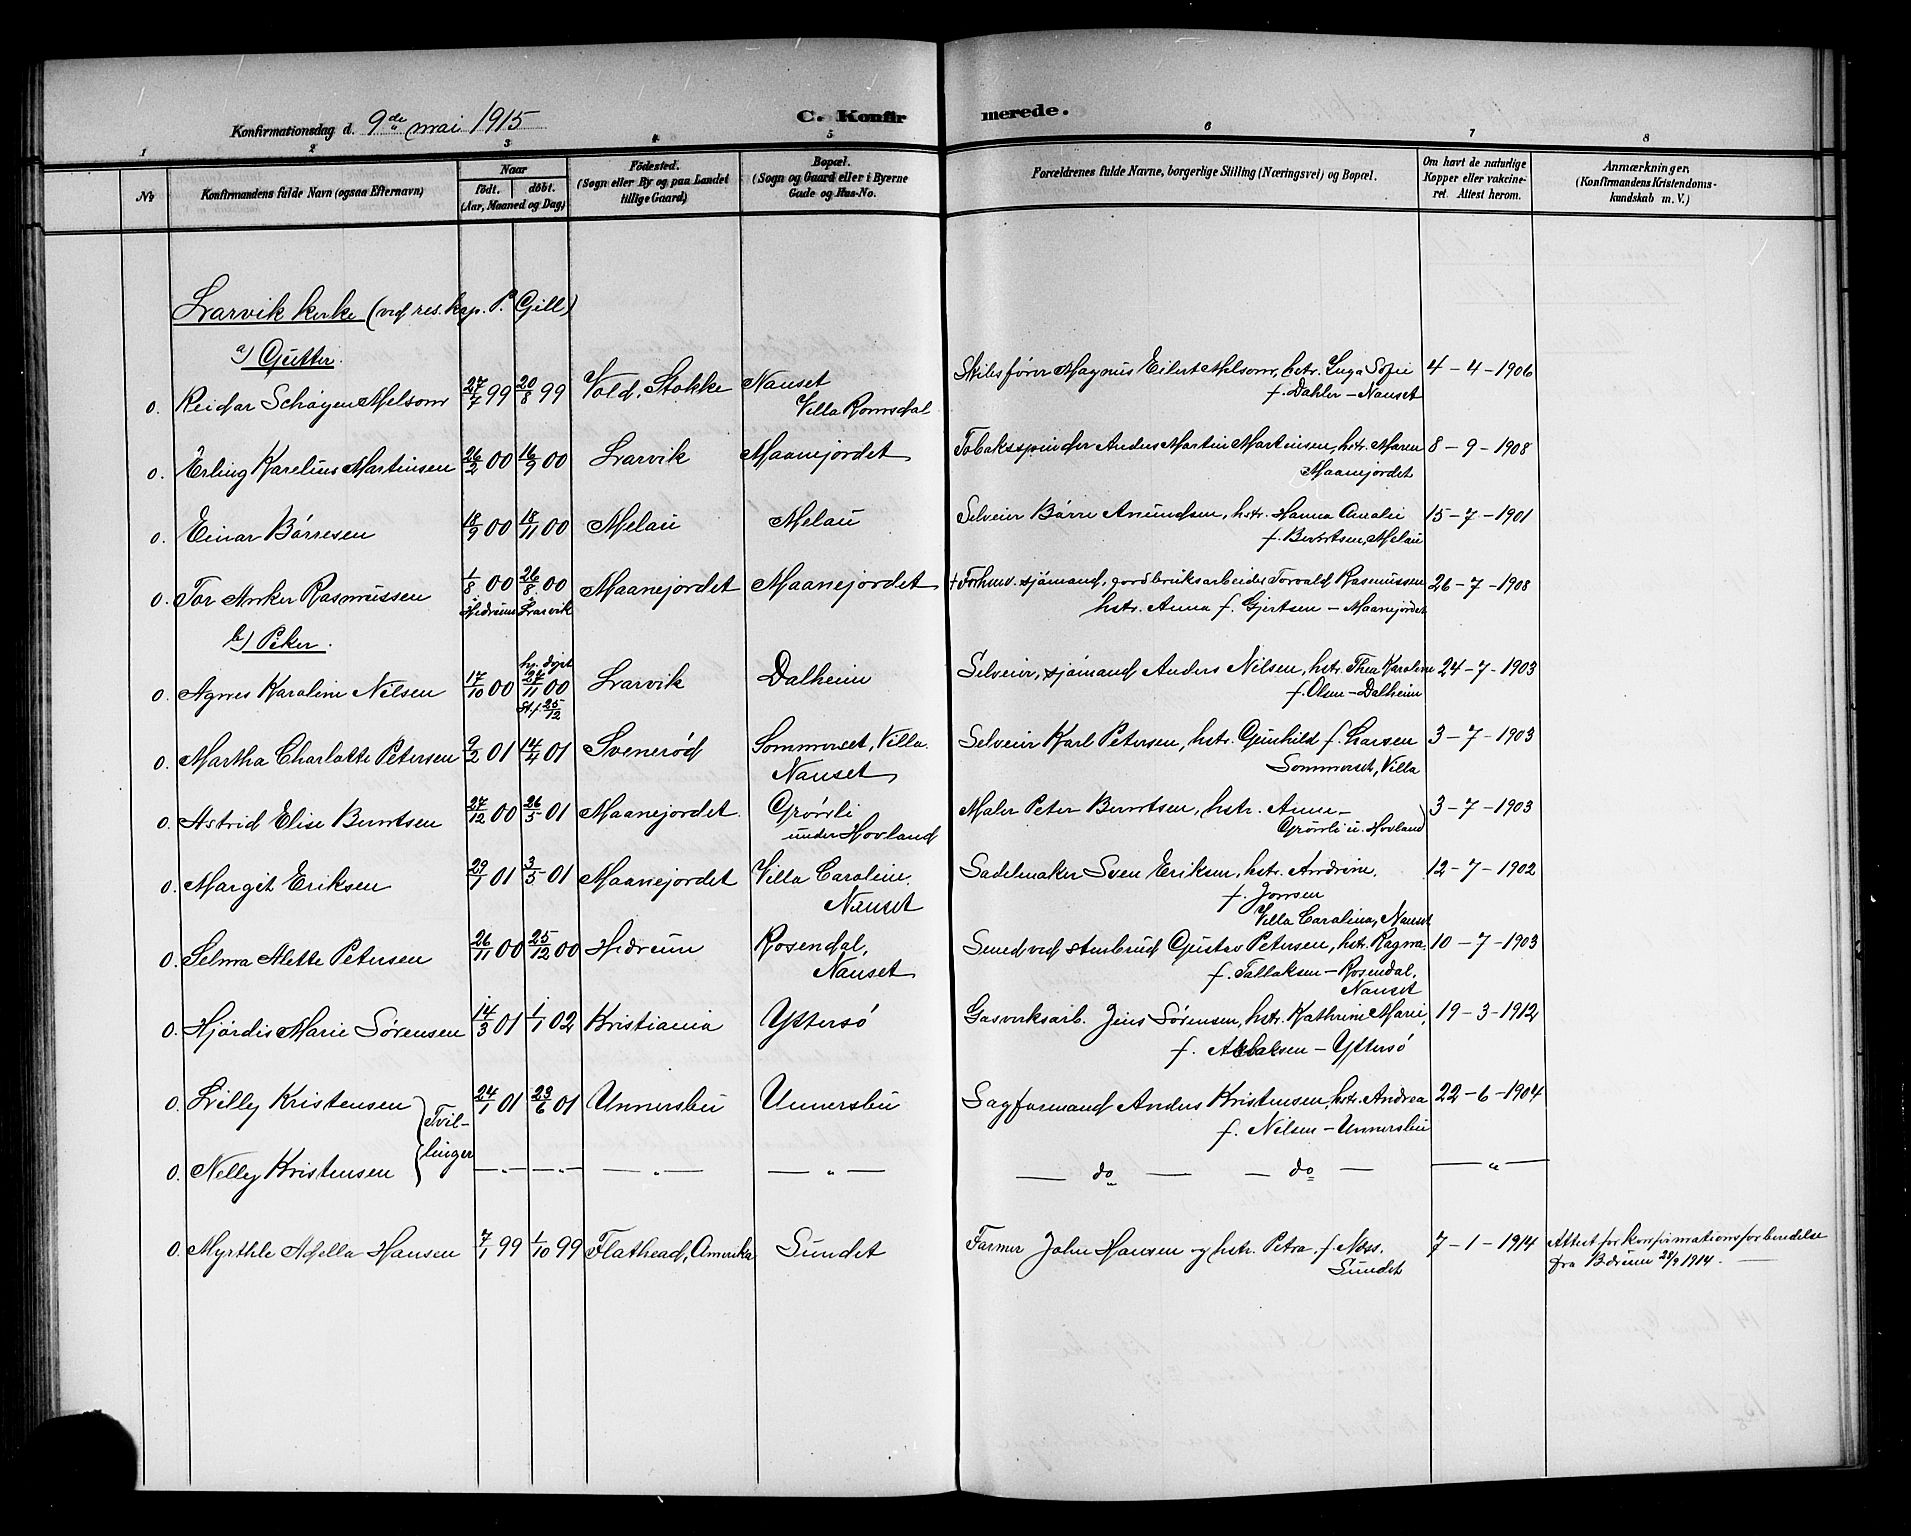 Konfirmationsdag d. 9de mai 1915
C. Konfirmerede.
1 2 3 4 5 6 7 8
No
Konfirmandens fulde Navn (ogsaa Efternavn)
Naar
födt. döbt.
(Aar, Maaned og Dag)
Födested.
(Sogn eller By og paa Landet
tillige Gaard)
Bopæl.
(Sogn og Gaard eller i Byerne
Gade og Hus-No.
Forældrenes fulde Navne, borgerlige Stilling (Næringsvei) og Bopæl.
Om havt de naturlige
Kopper eller vakcine-
ret. Attest herom.
Anmærkninger.
(Konfirmandens Kristendoms-
kundskab m. V.)
Larvik kirke (ved res. kap. P. Gill)
a) Gutter.
0. Reidar Schøyen Melsom 27/7 99 20/8 99 Vold, Stokke Nanset
Villa Romsdal
Skibsfører Magnus Eilert Melsom, hstr. Inga Sofie 4-4-1906
f. Dahler - Nanset
0. Erling Karelius Martinsen 26/2 00 16/9 00 Larvik Maanejordet
Tobakspinder Anders Martin Martinsen, hstr. Maren 8-9-1908
Maanejordet
0. Einar Børresen 18/9 00 18/11 00 Melau Melau
Selveier Børre Amundsen, hstr. Hanna Amalie 15-7-1901
f. Berntsen, Melau
0. Tor Anker Rasmussen 1/8 00 26/8 00 Maanejordet Maanejordet
i Hedrum i Larvik
+ Forhenv. sjømand, jordbruksarbeider Torvald Rasmussen 26-7-1908
hstr. Anna f. Gjertsen - Maanejordet
b) Piker.
0. Agnes Karoline Nilsen 17/10 00 hj. døpt 27/11 00 Larvik Dalheim
st. f. 25/12
Selveier, sjømand Anders Nilsen, hstr. Thea Karoline 24-7-1903
f. Olsen - Dalheim
0. Martha Charlotte Petersen 9/2 01 14/4 01 Svenerød Sommerset, Villa.
Nanset
Selveier Karl Petersen, hstr. Gunhild f. Larsen 3-7-1903
Sommerset, Villa
0. Astrid Elise Berntsen 27/12 00 26/5 01 Maanejordet. Grøvli
under Hovland
Maler Peter Berntsen, hstr. Anne - 3-7-1903
Grøvli u. Hovland
0. Margit Eriksen 29/1 01 3/5 01 Maanejordet Villa Caroline.
Nanset
Sadelmaker Sven Eriksen, hstr. Andrine, 12-7-1902
f. Jonsen
Villa Carolina, Nanset
0. Selma Alette Petersen 26/11 00 25/12 00 Hedrum Rosendal,
Nanset
Smed ved stenbrud Gustav Petersen, hstr. Ragna 10-7-1903
f. Tallaksen - Rosendal,
Nanset
0. Hjørdis Marie Sørensen 14/3 01 1/1 02 Kristiania Yttersö
Gasverksarb. Jens Sørensen, hstr. Kathrine Marie, 19-3-1912
f. - Yttersö
0. Lilly Kristensen } Tvil- 24/1 01 23/6 01 Unnersbu Unnersbu
Sagformand Anders Kristensen, hstr. Andrea 22-6-1904
f. Nilsen - Unnersbu
0. Nelly Kristensen } linger — " — — " — — " — — " —
— do — — do — — " —
0. Myrthle Adella Hansen 7/1 99 1/10 99 Flathead, Amerika Sundet
Farmer John Hansen og hstr. Petra f. Moss. 7-1-1914
Sundet
Attest for konfirmationsforberedelse
fra Bærum 28/9 1914. —